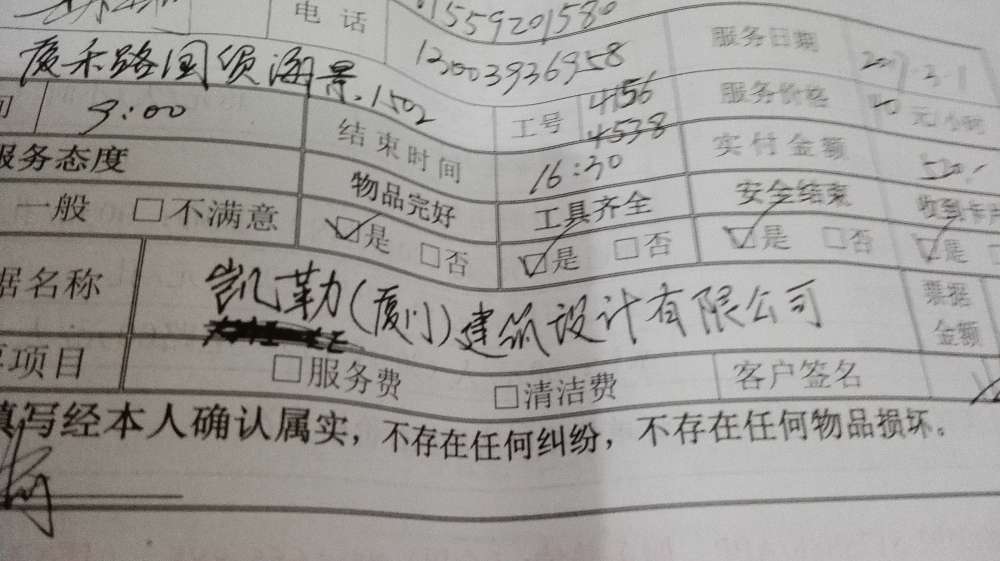 电话 01559201580 服务日期 2017.3.1
厦禾路国贸海景.1502 13003936958
间 9:00 结束时间 工号 4156 4538 服务价格 元/小时
服务态度 16:30 实付金额 520.-
物品完好 工具齐全 安全结束 收到卡
一般 □不满意 ☑是 □否 ☑是 □否 ☑是 □否 ☑是
据名称 凯勒(厦门)建筑设计有限公司 票据金额
项目 □服务费 □清洁费 客户签名
填写经本人确认属实，不存在任何纠纷，不存在任何物品损坏。